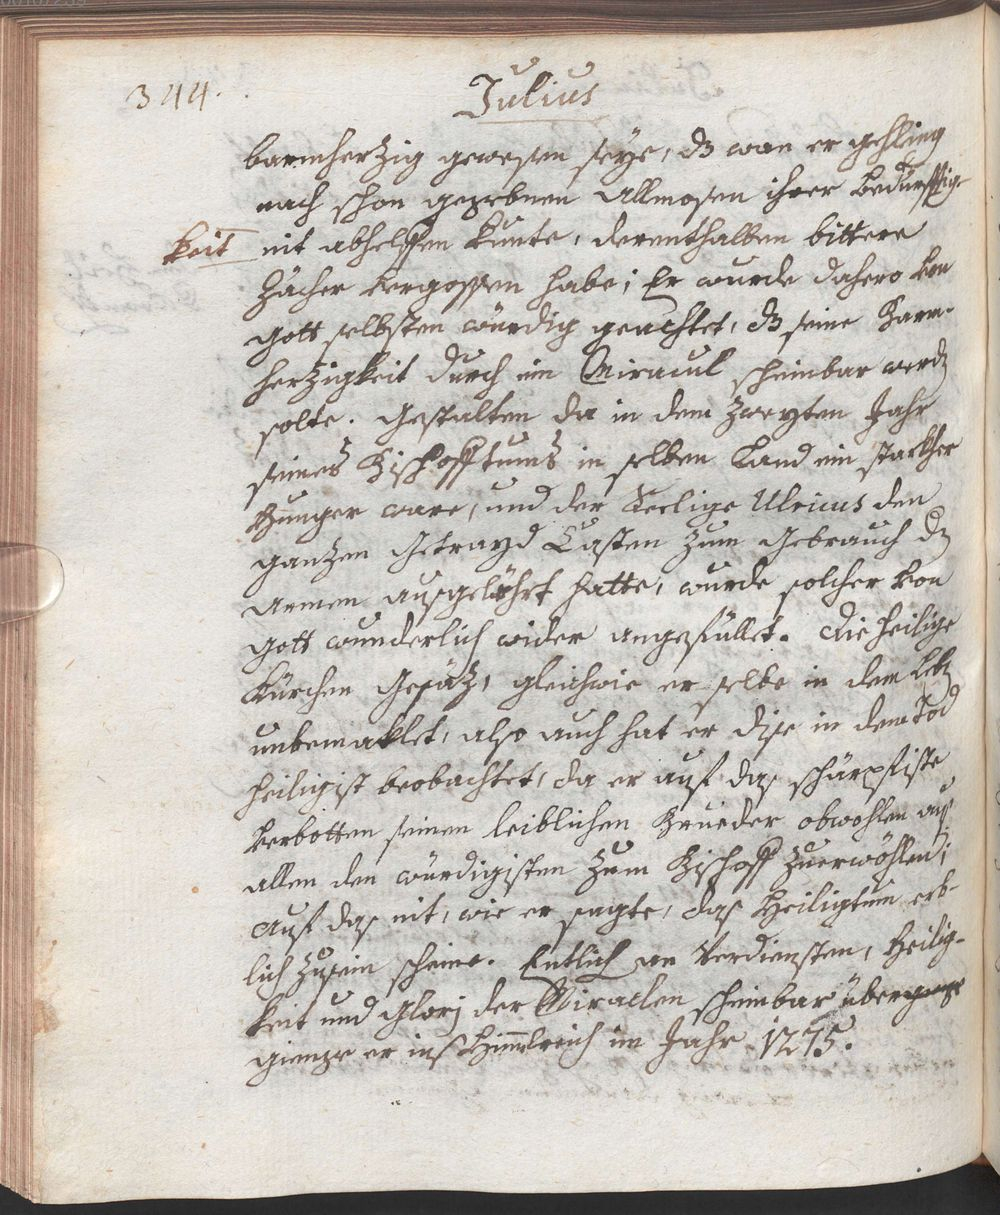 344.
Julius
barmherzig gewesen seÿe, dz wan er gehling
nach schon gegebnen Allmosen ihrer bedürfftig-
keit nit abhelffen kunte, derenthalben bittere
Zächer vergossen habe; Er wurde dahero von
Gott selbsten würdig geachtet, dz seine Barm-
herzigkeit durch ein Miracul scheinbar werdn
solte. Gestalten da in dem zweyten Jahr
seines Bischofftums in selben Land ein starkher
Hunger ware, und der Seelige Ulricus den
ganzen Getrayd Casten zum Gebrauch der
Armen ausgelährt hatte, wurde solcher von
Gott wunderlich wider angefüllet. Die heilige
Kürchen Gesätz, gleichwie er selbe in dem Lebn
unbemaklet, also auch hat er dise in dem Tod
heiligist beobachtet, da er auf das schärpfiste
verbotten seinen leiblichen Brueder obwohlen aus
allen den würdigisten zum Bischoff zuerwöhlen;
auf das nit, wie er sagte, das Heiligtum erb-
lich zusein scheine. Entlich an Verdiensten, Heilig-
keit und Glorj der Miraclen scheinbar über
gienge er ins Himmelreich im Jahr 1275.